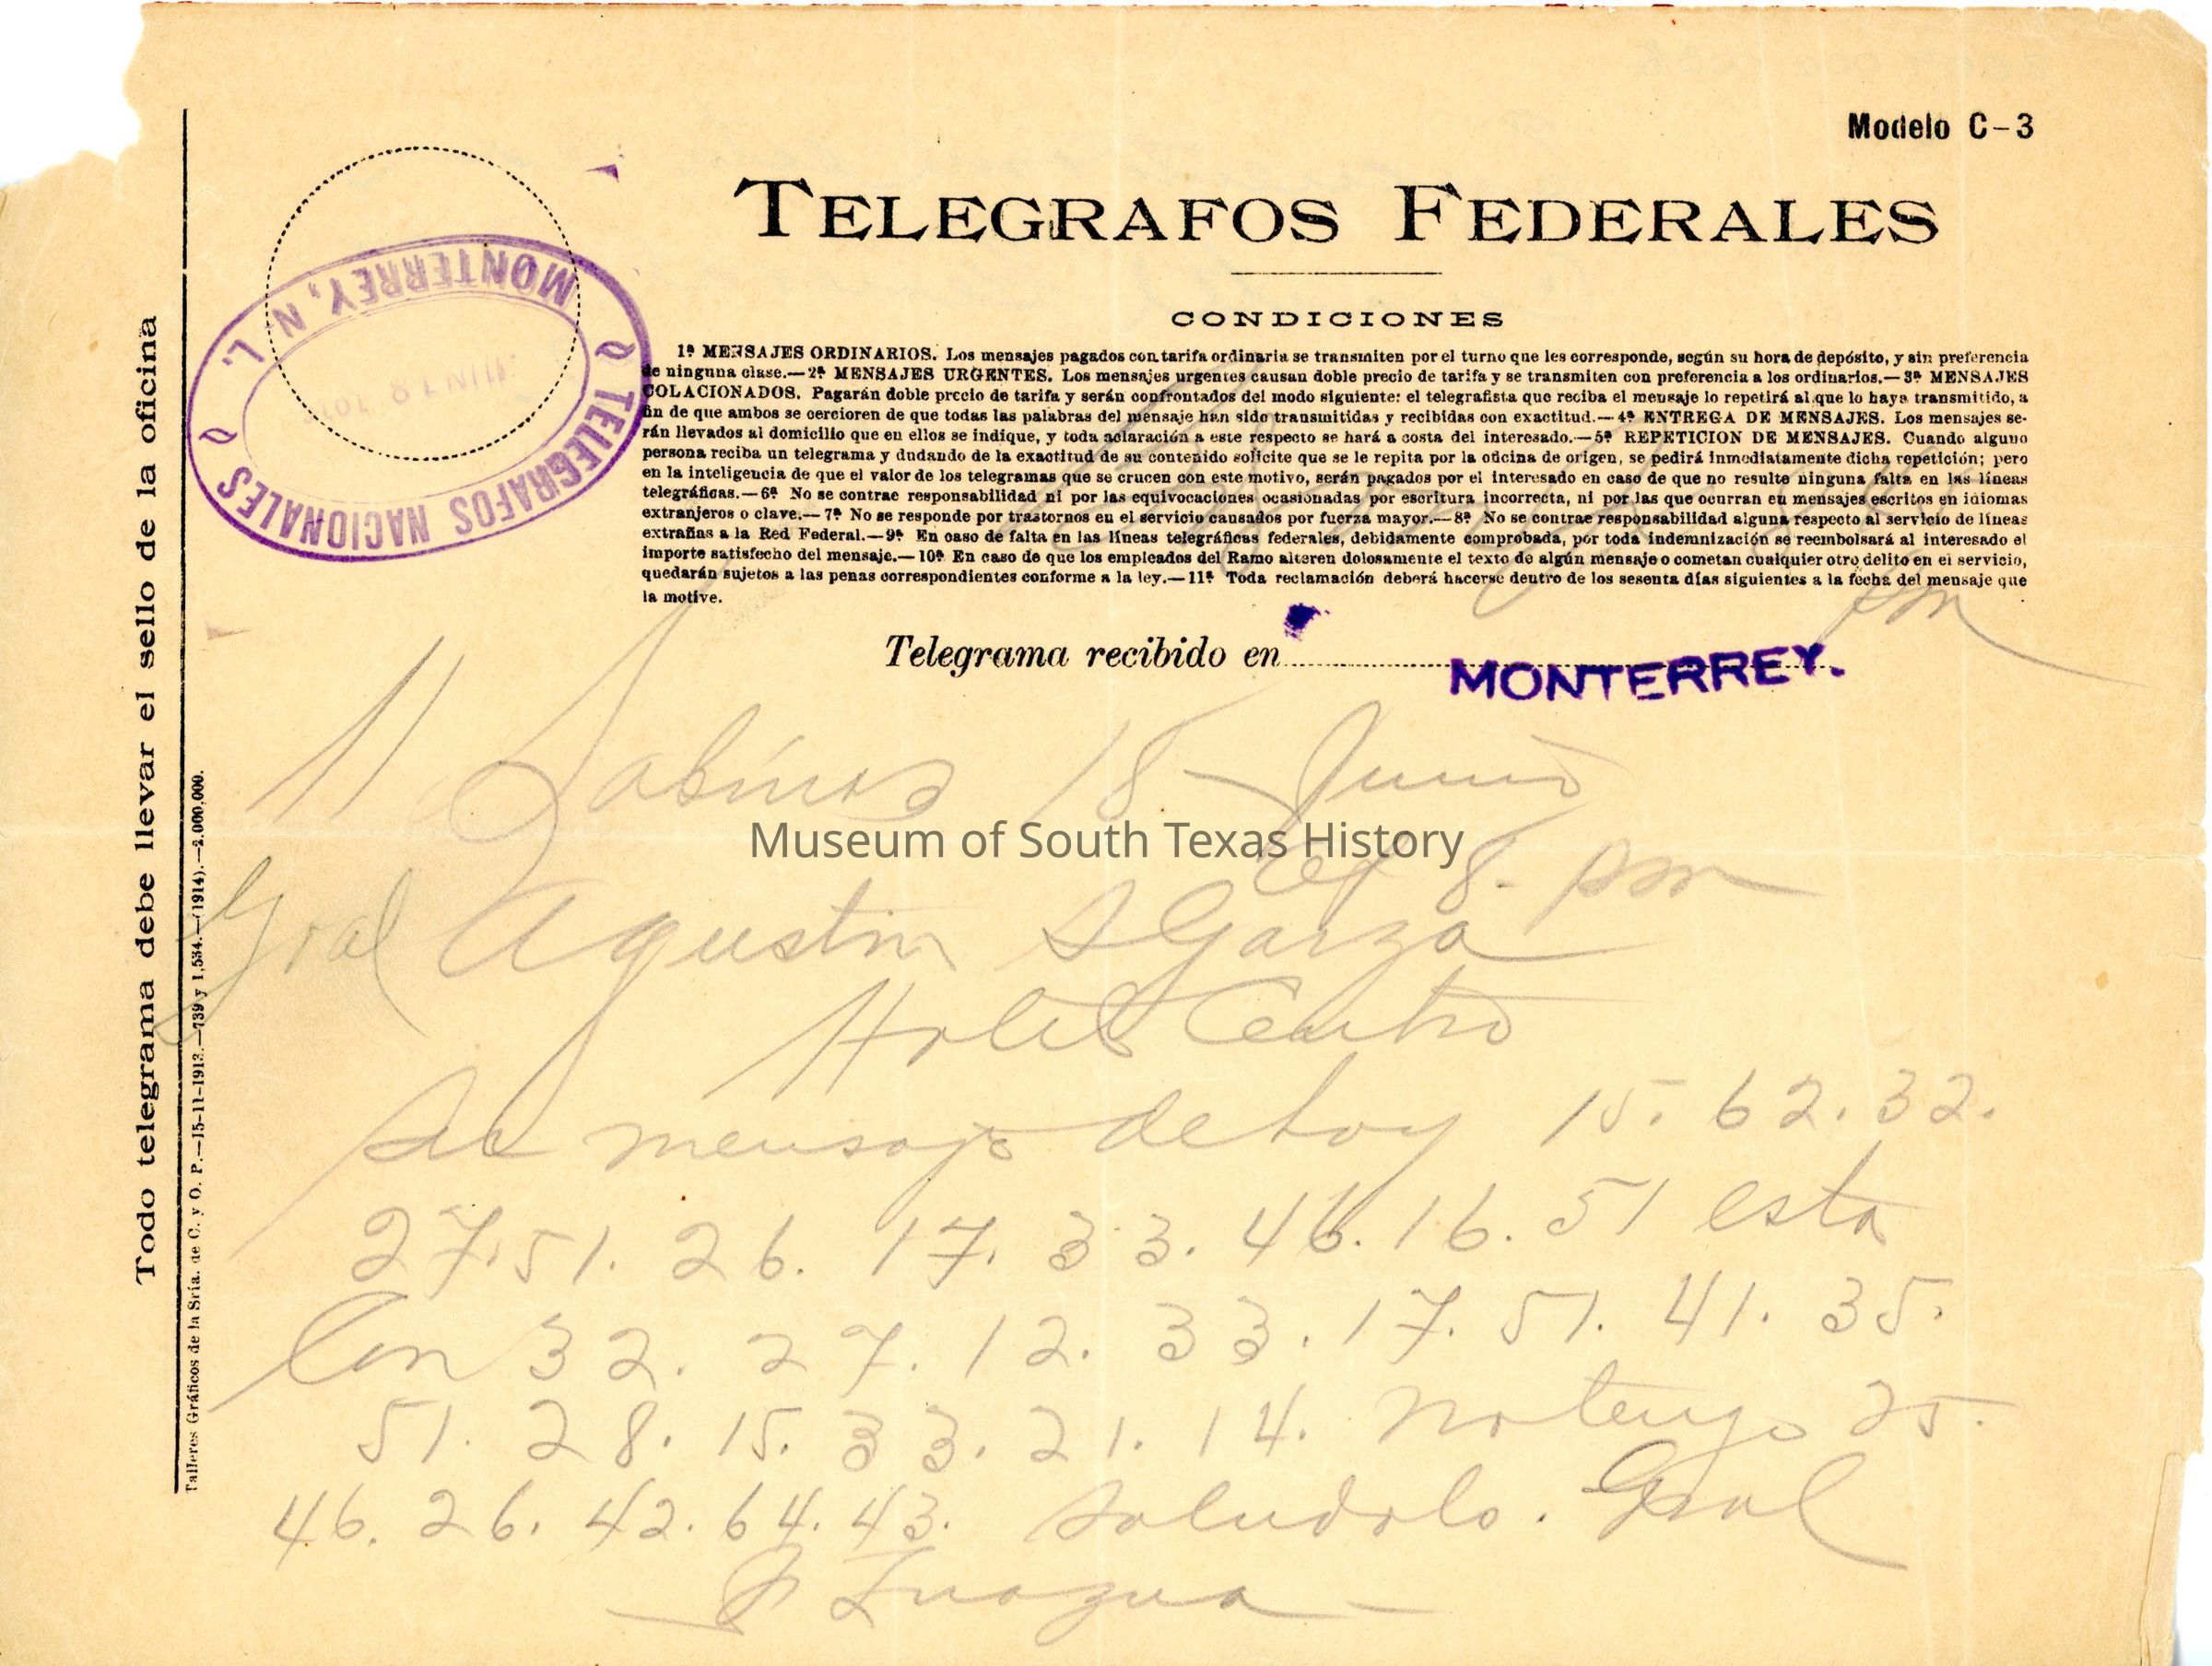 Modelo C-3
TELEGRAFOS FEDERALES
CONDICIONES
1ª MENSAJES ORDINARIOS. Los mensajes pagados con tarifa ordinaria se transmiten por el turno que les corresponde, según su hora de depósito, y sin preferencia
de ninguna clase.—2ª MENSAJES URGENTES. Los mensajes urgentes causan doble precio de tarifa y se transmiten con preferencia a los ordinarios.—3ª MENSAJES
COLACIONADOS. Pagarán doble precio de tarifa y serán confrontados del modo siguiente: el telegrafista que reciba el mensaje lo repetirá al que lo haya transmitido, a
fin de que ambos se cercioren de que todas las palabras del mensaje han sido transmitidas y recibidas con exactitud.—4ª ENTREGA DE MENSAJES. Los mensajes se-
rán llevados al domicilio que en ellos se indique, y toda aclaración a este respecto se hará a costa del interesado.—5ª REPETICION DE MENSAJES. Cuando alguno
persona reciba un telegrama y dudando de la exactitud de su contenido solicite que se le repita por la oficina de origen, se pedirá inmediatamente dicha repetición; pero
en la inteligencia de que el valor de los telegramas que se crucen con este motivo, serán pagados por el interesado en caso de que no resulte ninguna falta en las líneas
telegráficas.—6ª No se contrae responsabilidad ni por las equivocaciones ocasionadas por escritura incorrecta, ni por las que ocurran en mensajes escritos en idiomas
extranjeros o clave.—7ª No se responde por trastornos en el servicio causados por fuerza mayor.—8ª No se contrae responsabilidad alguna respecto al servicio de líneas
extrañas a la Red Federal.—9ª En caso de falta en las líneas telegráficas federales, debidamente comprobada, por toda indemnización se reembolsará al interesado el
importe satisfecho del mensaje.—10ª En caso de que los empleados del Ramo alteren dolosamente el texto de algún mensaje o cometan cualquier otro delito en el servicio,
quedarán sujetos a las penas correspondientes conforme a la ley.—11ª Toda reclamación deberá hacerse dentro de los sesenta días siguientes a la fecha del mensaje que
la motive.
pm
Telegrama recibido en MONTERREY.
TELEGRAFOS NACIONALES
MONTERREY, N. L.
JUN 18
Todo telegrama debe llevar el sello de la oficina
Talleres Gráficos de la Sría. de C. y O. P.—15-11-1913.—739 y 1,534.—(1914).—2.000,000.
11 Sabinas 18 Junio
Museum of South Texas History
8. pm
Gral Agustin S Garza
Hotel Centro
Su mensaje de hoy 15. 62. 32.
27. 51. 26. 17. 33. 46. 16. 51 esta
Con 32. 27. 12. 33. 17. 51. 41. 35.
51. 28. 15. 33. 21. 14. no tengo 25.
46. 26. 42. 64. 43. Saludolo. Gral
P Zuazua